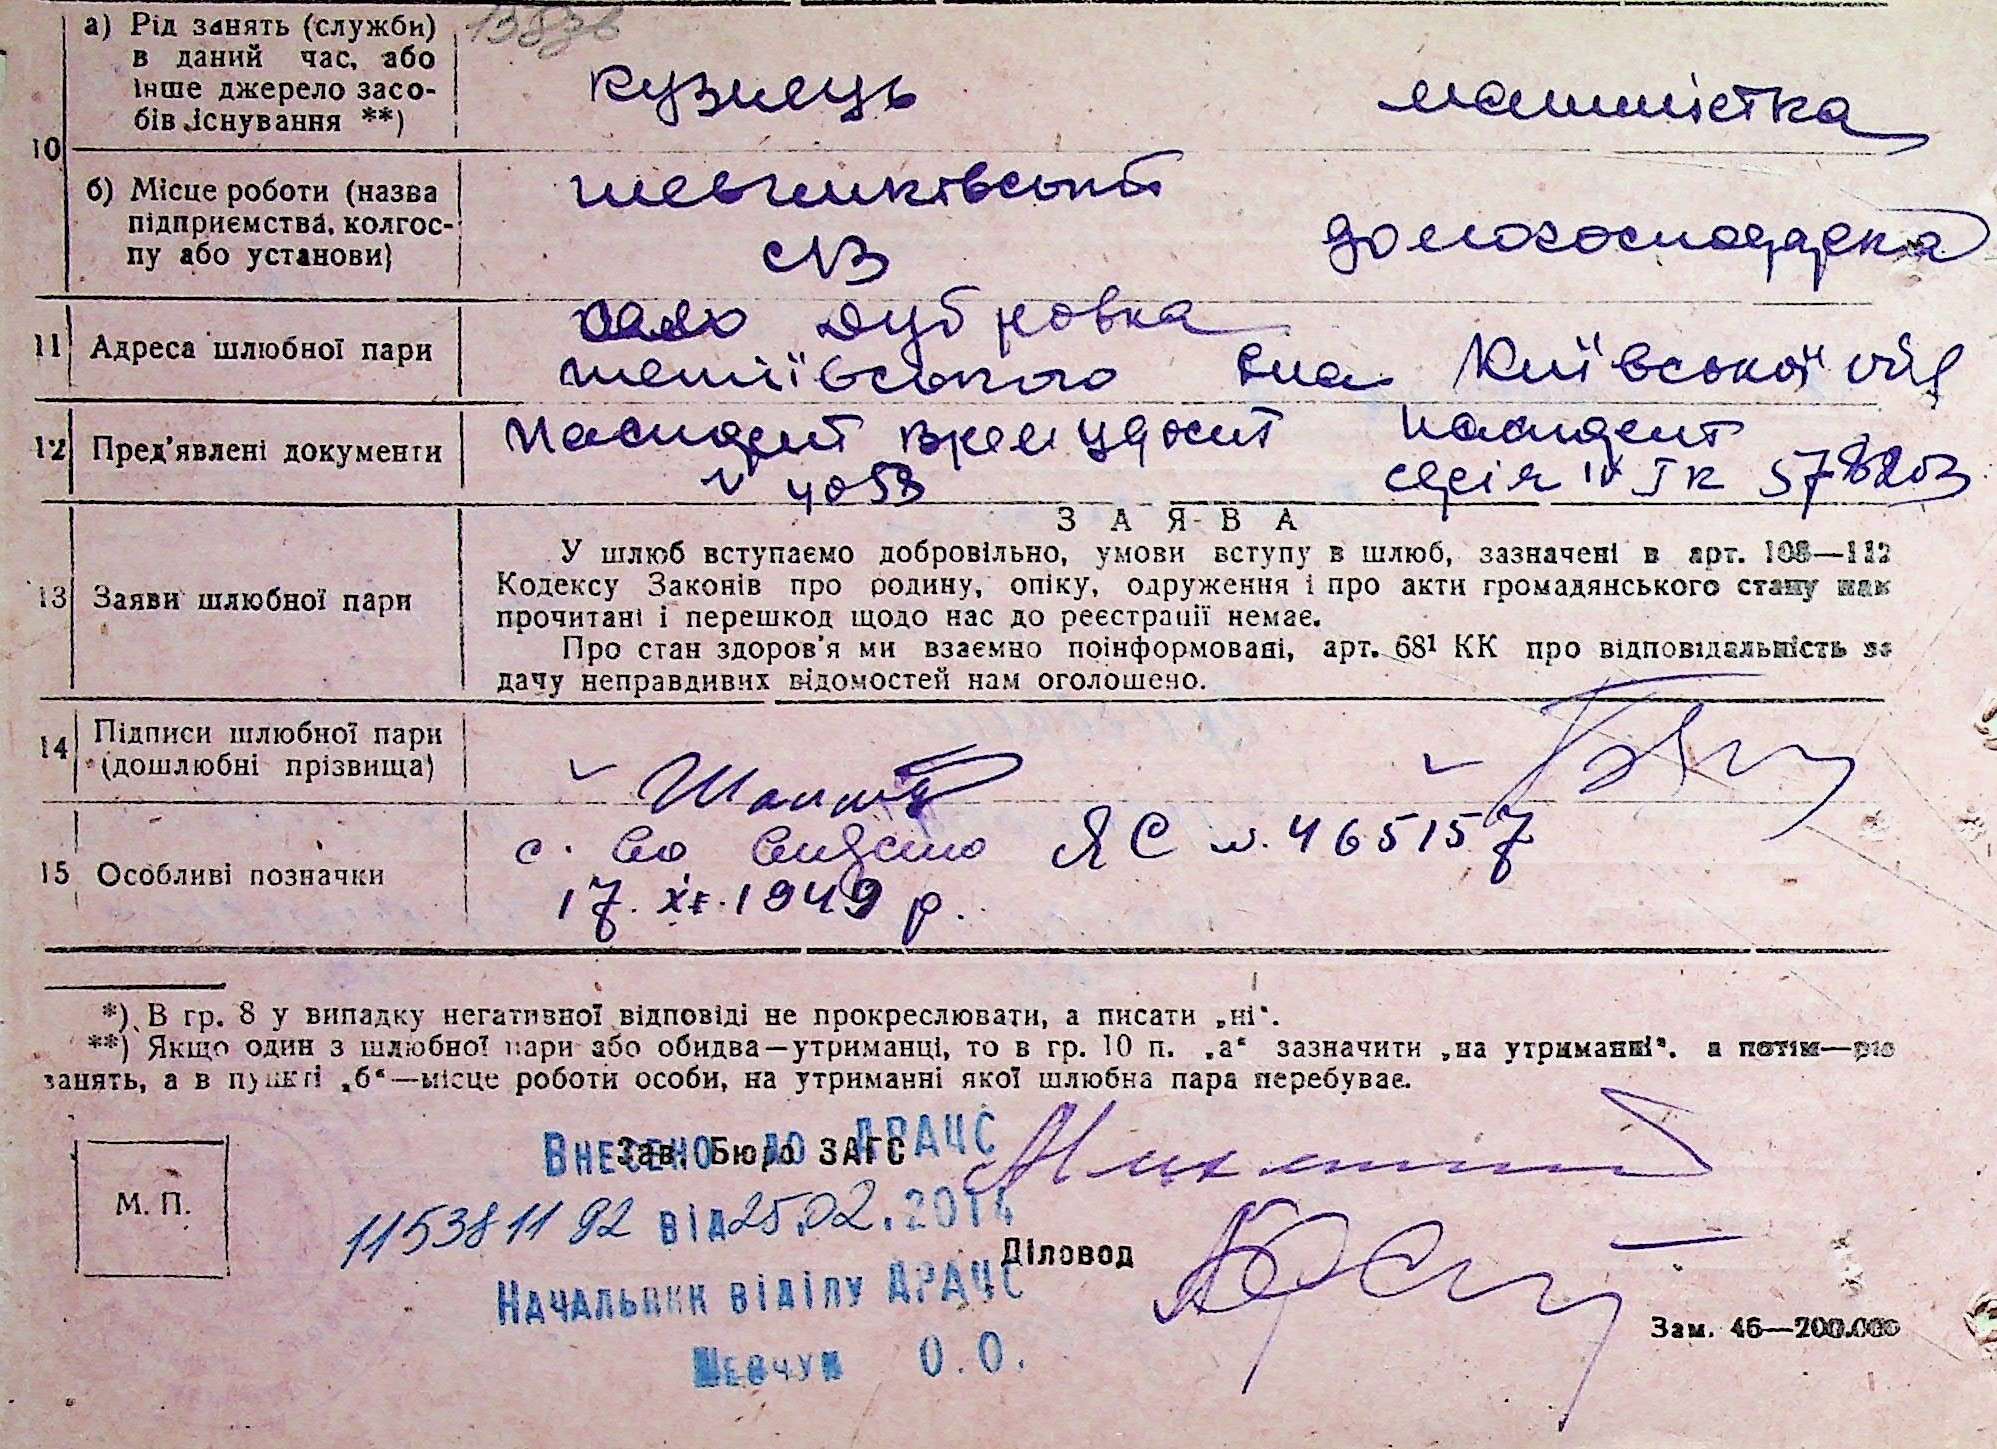 а) Рід занять (служби)
в даний час, або
інше джерело засо-
бів існування **)
кузнець
машиністка
10
б) Місце роботи (назва
підприємства, колгос-
пу або установи)
домогосподарка
11 Адреса шлюбної пари
село Дубровка
Київської обл
12 Пред'явлені документи
паспорт
№ 4058
серія IV ІК 578203
З А Я В А
13 Заяви шлюбної пари
У шлюб вступаємо добровільно, умови вступу в шлюб, зазначені в арт. 108—112
Кодексу Законів про родину, опіку, одруження і про акти громадянського стану нам
прочитані і перешкод щодо нас до реєстрації немає.
Про стан здоров'я ми взаємно поінформовані, арт. 68¹ КК про відповідальність за
дачу неправдивих відомостей нам оголошено.
14 Підписи шлюбної пари
(дошлюбні прізвища)
15 Особливі позначки
ЯС № 465157
17. XI. 1949 р.
*) В гр. 8 у випадку негативної відповіді не прокреслювати, а писати „ні“.
**) Якщо один з шлюбної пари або обидва—утриманці, то в гр. 10 п. „а“ зазначити „на утриманні“, а потім—рід
занять, а в пункті „б“—місце роботи особи, на утриманні якої шлюбна пара перебуває.
Зав. Бюро ЗАГС
Внесено до ДРАЧС
М. П.
115381192 від 25.02.2014
Діловод
Начальник відділу ДРАЧС
Зам. 46—200.000
Шевчук О.О.